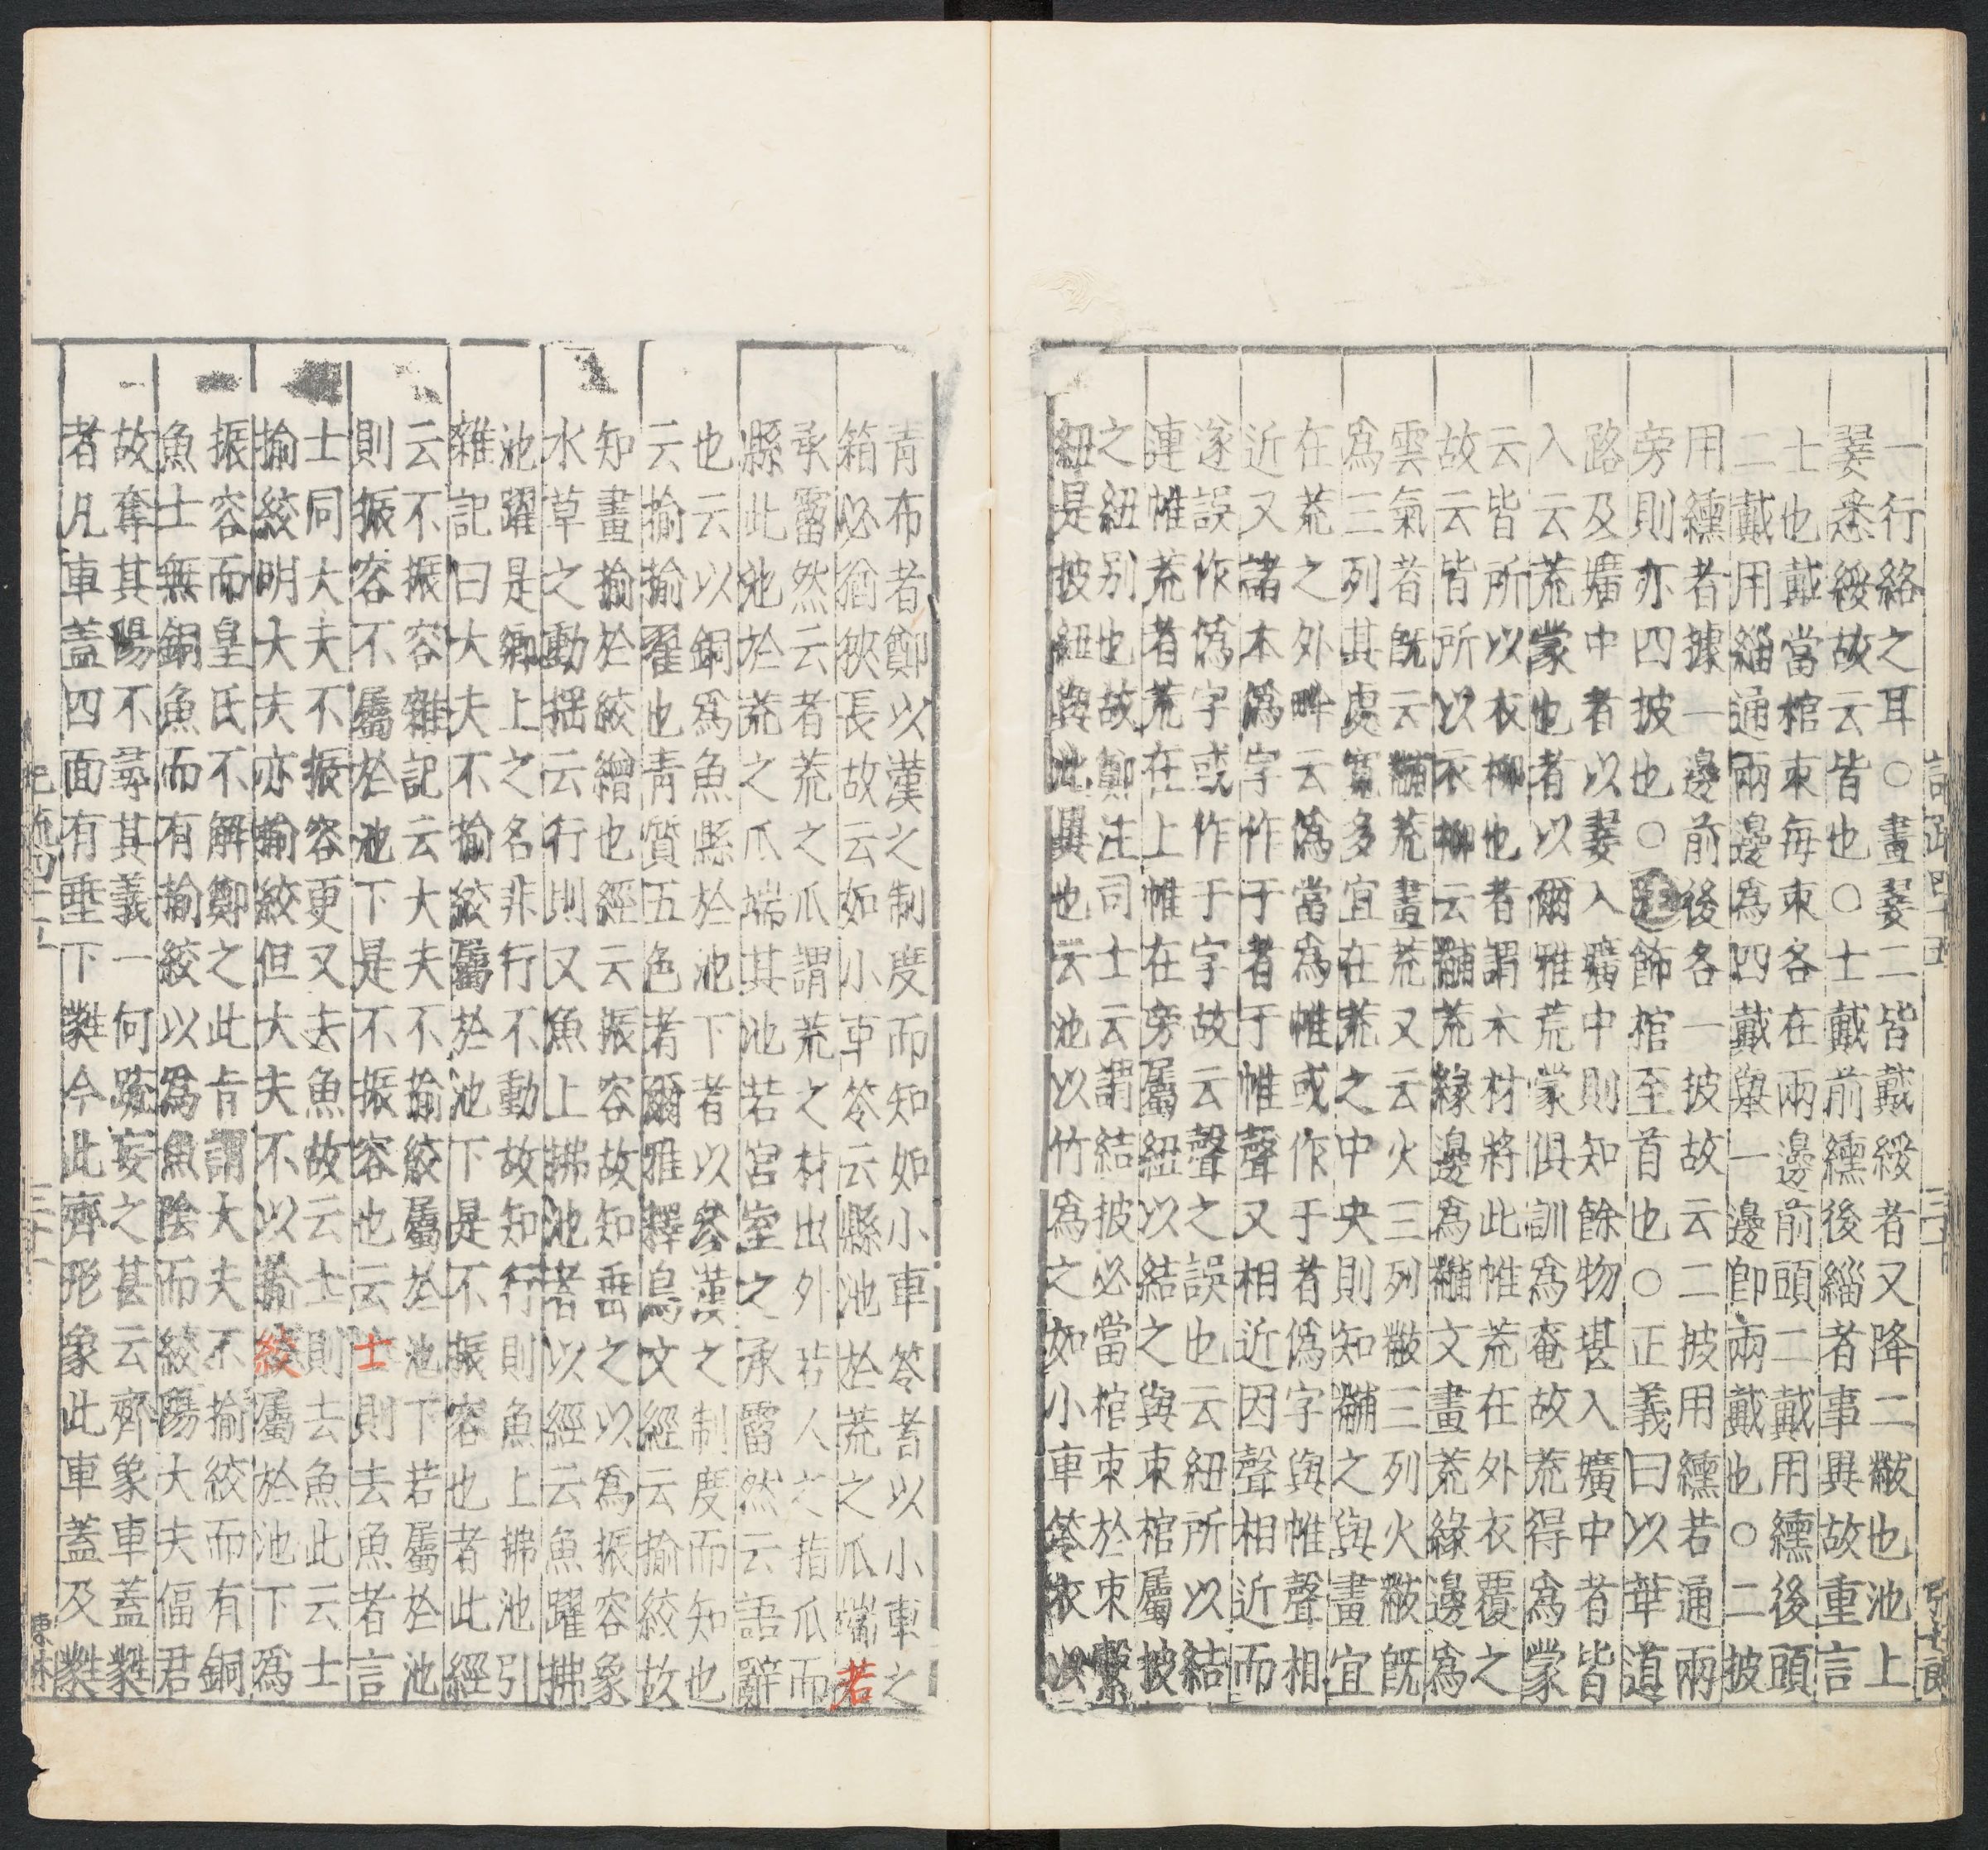 一行絡之耳○畫翣二皆戴綏者又降二黻也池上
翣悉綏故云皆也○士戴前纁後緇者事異故重言
士也戴當棺束每束各在兩邊前頭二戴用纁後頭
二戴用緇通兩邊爲四戴舉一邊卽兩戴也○二披
用纁者據一邊前後各一披故云二披用纁若通兩
旁則亦四披也○注飾棺至首也○正義曰以華道
路及壙中者以翣入壙中則知餘物堪入壙中者皆
入云荒蒙也者以爾雅荒蒙俱訓爲奄故荒得爲蒙
云皆所以衣柳也者謂木材將此帷荒在外衣覆之
故云皆所以衣柳云黼荒緣邊爲黼文畫荒緣邊爲
雲氣者旣云黼荒畫荒又云火三列黻三列火黻旣
爲三列其處寬多宜在荒之中央則知黼之與畫宜
在荒之外畔云僞當爲帷或作于者僞字與帷聲相
近又諸本僞字作于者于帷聲又相近因聲相近而
遂誤作僞字或作于字故云聲之誤也云紐所以結
連帷荒者荒在上帷在旁屬紐以結之與束棺屬披
之紐別也故鄭注司士云謂結披必當棺束於束繫
紐是披紐與此異也云池以竹爲之如小車笭衣以
記疏四十五
三十
弓士郎
青布者鄭以漢之制度而知如小車笭者以小車之
箱必猶狹長故云如小車笭云縣池於荒之爪端若
承霤然云者荒之爪謂荒之材出外若人之指爪而
縣此池於荒之爪端其池若宮室之承霤然云語辭
也云以銅爲魚縣於池下者以參漢之制度而知也
云揄揄翟也青質五色者爾雅釋鳥文經云揄絞故
知畫揄於絞繒也經云振容故知垂之以爲振容象
水草之動搖云行則又魚上拂池者以經云魚躍拂
池躍是鄉上之名非行不動故知行則魚上拂池引
雜記曰大夫不揄絞屬於池下是不振容也者此經
云不振容雜記云大夫不揄絞屬於池下若屬於池
則振容不屬於池下是不振容也云士則去魚者言
士同大夫不振容更又去魚故云士則去魚此云士
揄絞明大夫亦揄絞但大夫不以揄絞屬於池下爲
振容而皇氏不解鄭之此旨謂大夫不揄絞而有銅
魚士無銅魚而有揄絞以爲魚陰而絞陽大夫偪君
故奪其陽不尋其義一何疏妄之甚云齊象車蓋蕤
者凡車蓋四面有垂下蕤今此齊形象此車蓋及蕤
記疏四十五
三十一
東林